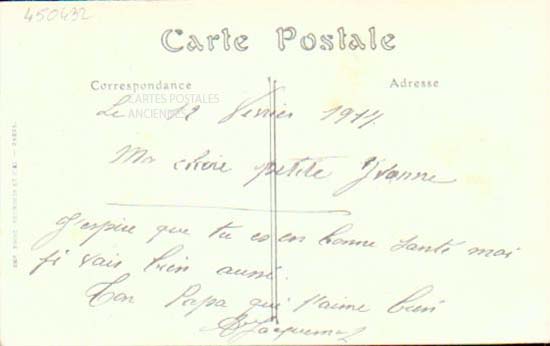 450432
Carte Postale
Correspondance
Adresse
CARTES POSTALES
ANCIENNES
Le 12 Février 1917.
Ma chère petite Yvonne
J'espère que tu es en bonne santé moi
je vais bien aussi.
Ton Papa qui t'aime bien